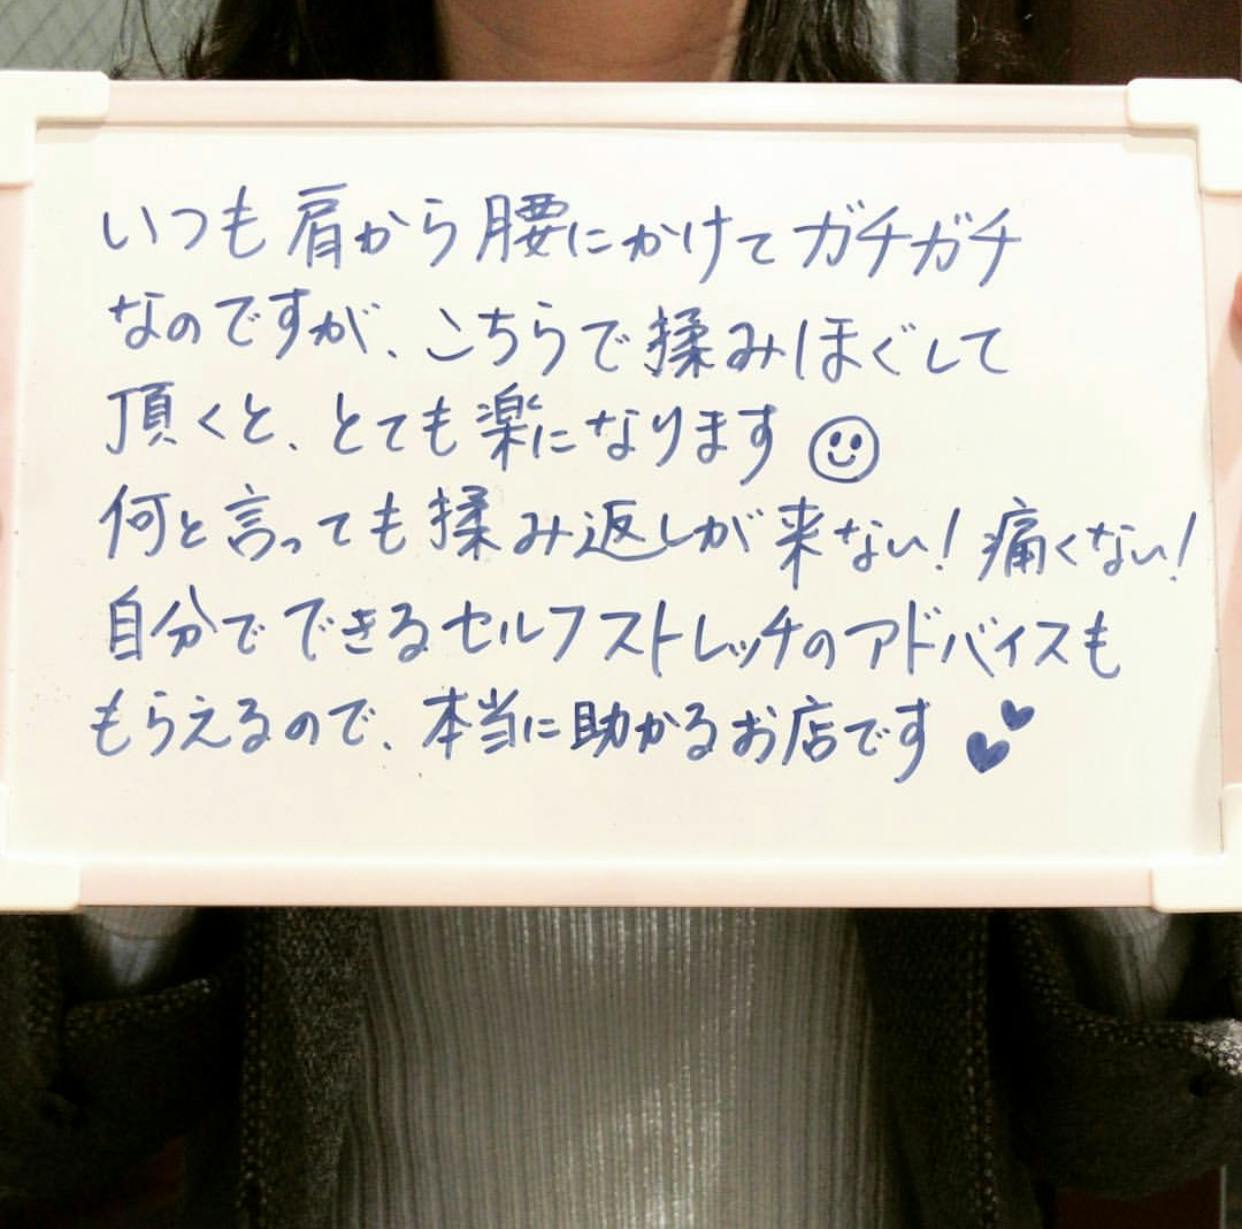 いつも肩から腰にかけてガチガチ
なのですが、こちらで揉みほぐして
頂くと、とても楽になります☺
何と言っても揉み返しが来ない!痛くない!
自分でできるセルフストレッチのアドバイスも
もらえるので、本当に助かるお店です💕